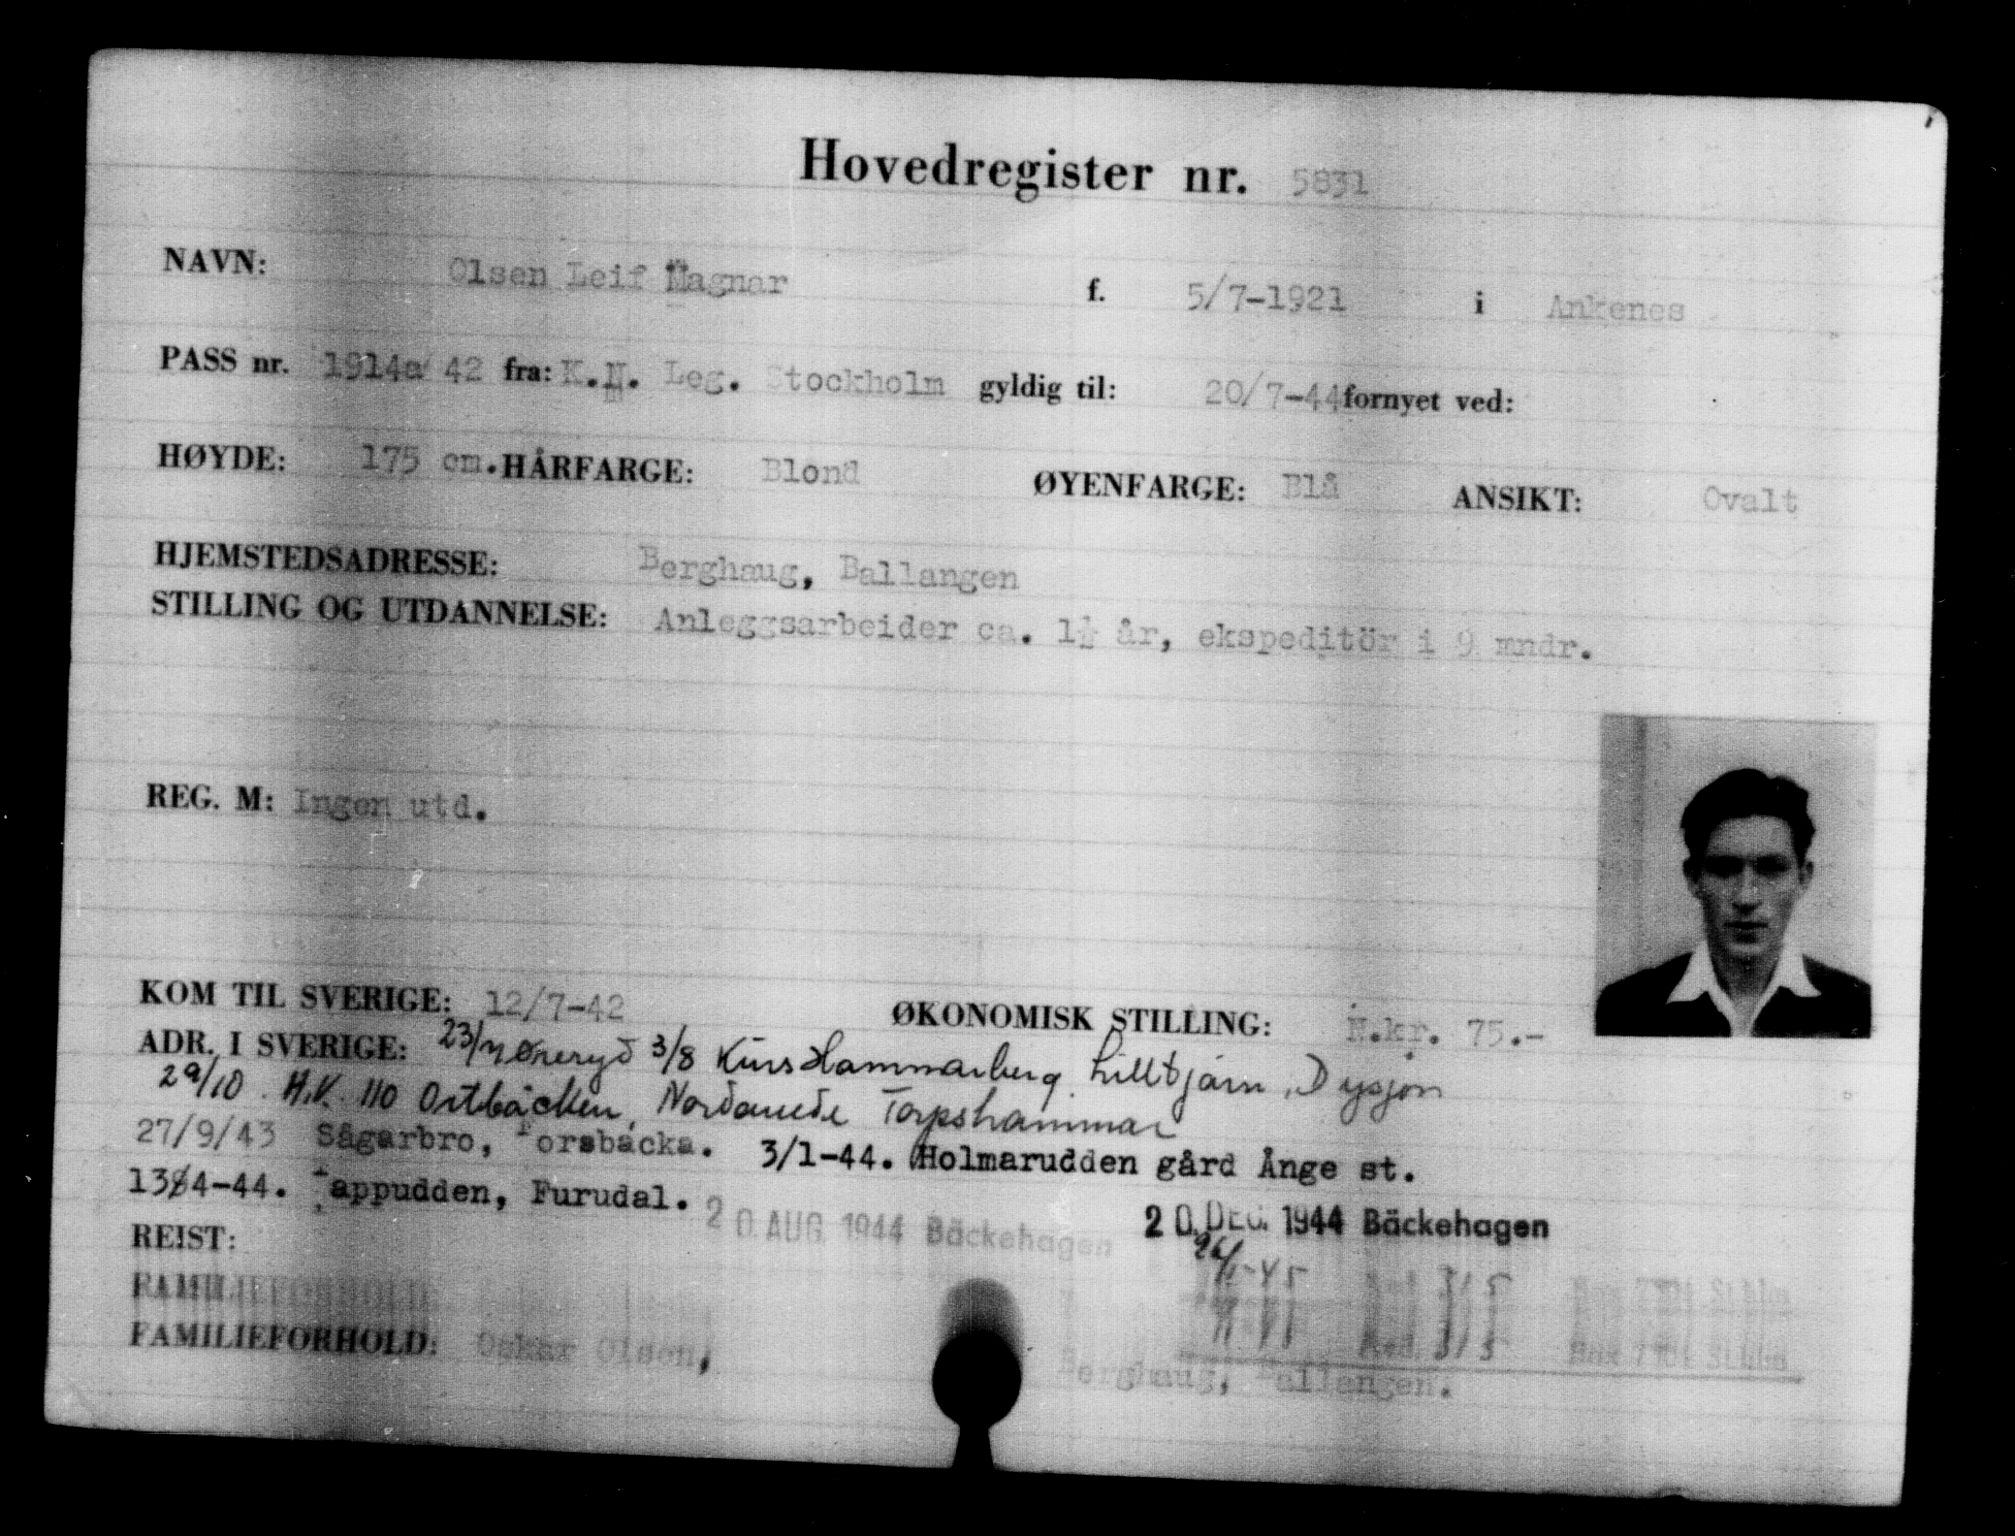 Hovedregister nr. 5831
NAVN: Olsen Leif Magnar f. 5/7-1921 i Ankenes
PASS nr. 1914a/42 fra: K.N. Leg. Stockholm gyldig til: 20/7-44 fornyet ved:
HØYDE: 175 cm. HÅRFARGE: Blond ØYENFARGE: Blå ANSIKT: Ovalt
HJEMSTEDSADRESSE: Berghaug, Ballangen
STILLING OG UTDANNELSE: Anleggsarbeider ca. 1½ år, ekspeditör i 9 mndr.
REG. M: Ingen utd.
KOM TIL SVERIGE: 12/7-42 ØKONOMISK STILLING: N.kr. 75.-
ADR. I SVERIGE: 23/7 Øneryd 3/8 Kurs Hammarberg, Lilltjärn, Dysjön
29/10 H.V. 110 Östbäcken, Nordanede Torpshammar
27/9/43 Sågarbro, Forsbacka. 3/1-44. Holmarudden gård Ånge st.
13/4-44. Tappudden, Furudal.
20 AUG 1944 Bäckehagen 20. DEC. 1944 Bäckehagen
REIST:
-45
FAMILIEFORHOLD:
FAMILIEFORHOLD: Oskar Olsen, Berghaug, Ballangen.